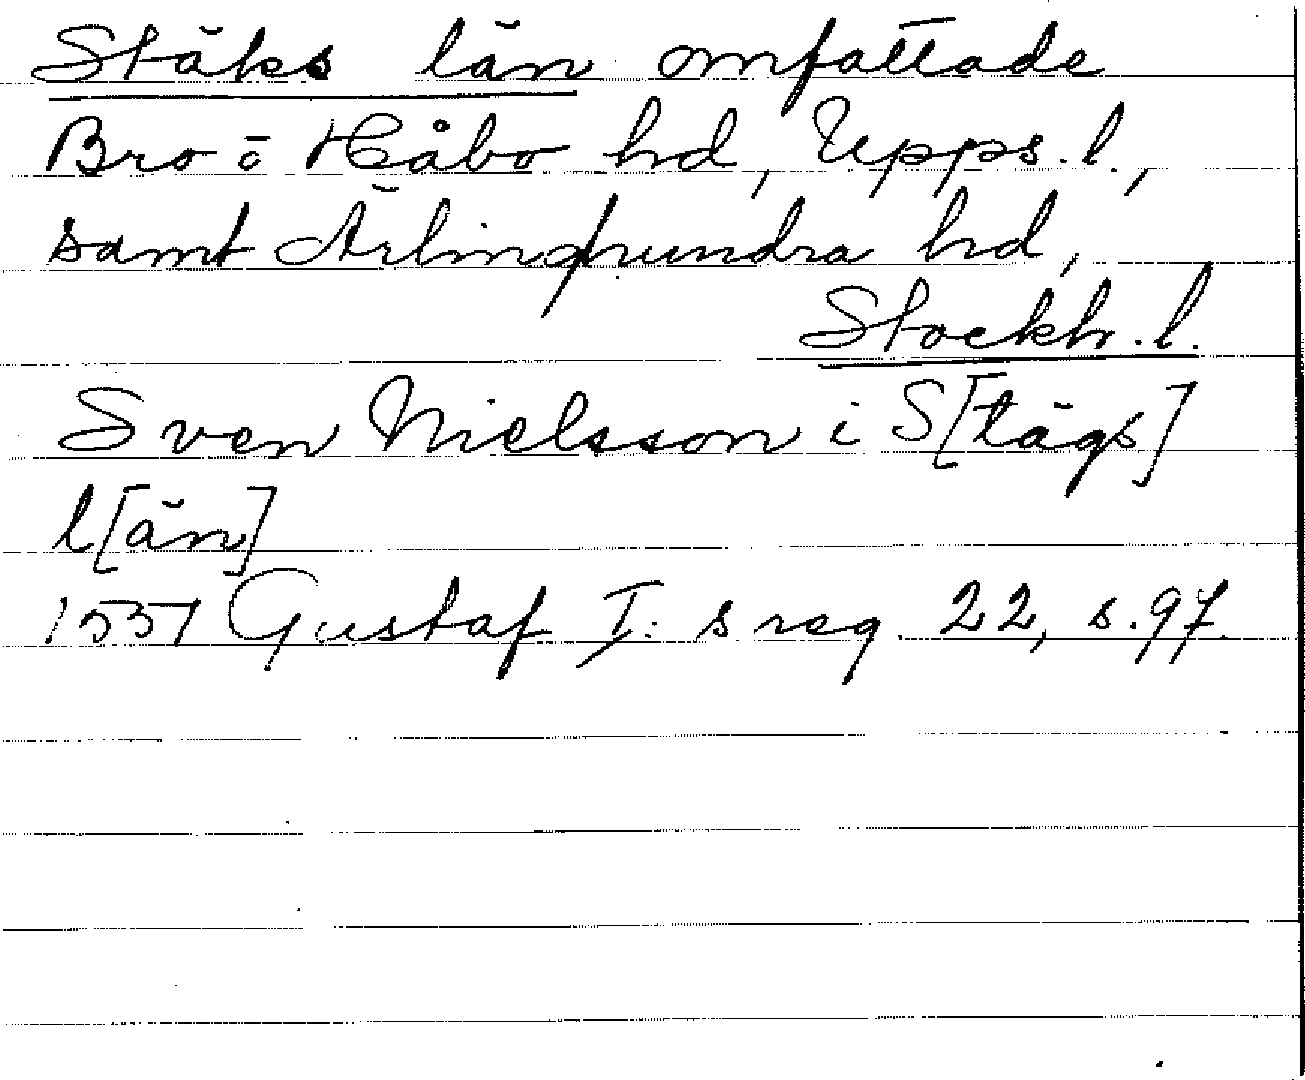 Stäks län omfattade
Bro o Håbo hd, Upps. l.,
samt Ärlinghundra hd,
Stockh. l.
Sven Nielsson i S[tägs]
l[än]
1551 Gustaf I: s reg. 22, s. 97.